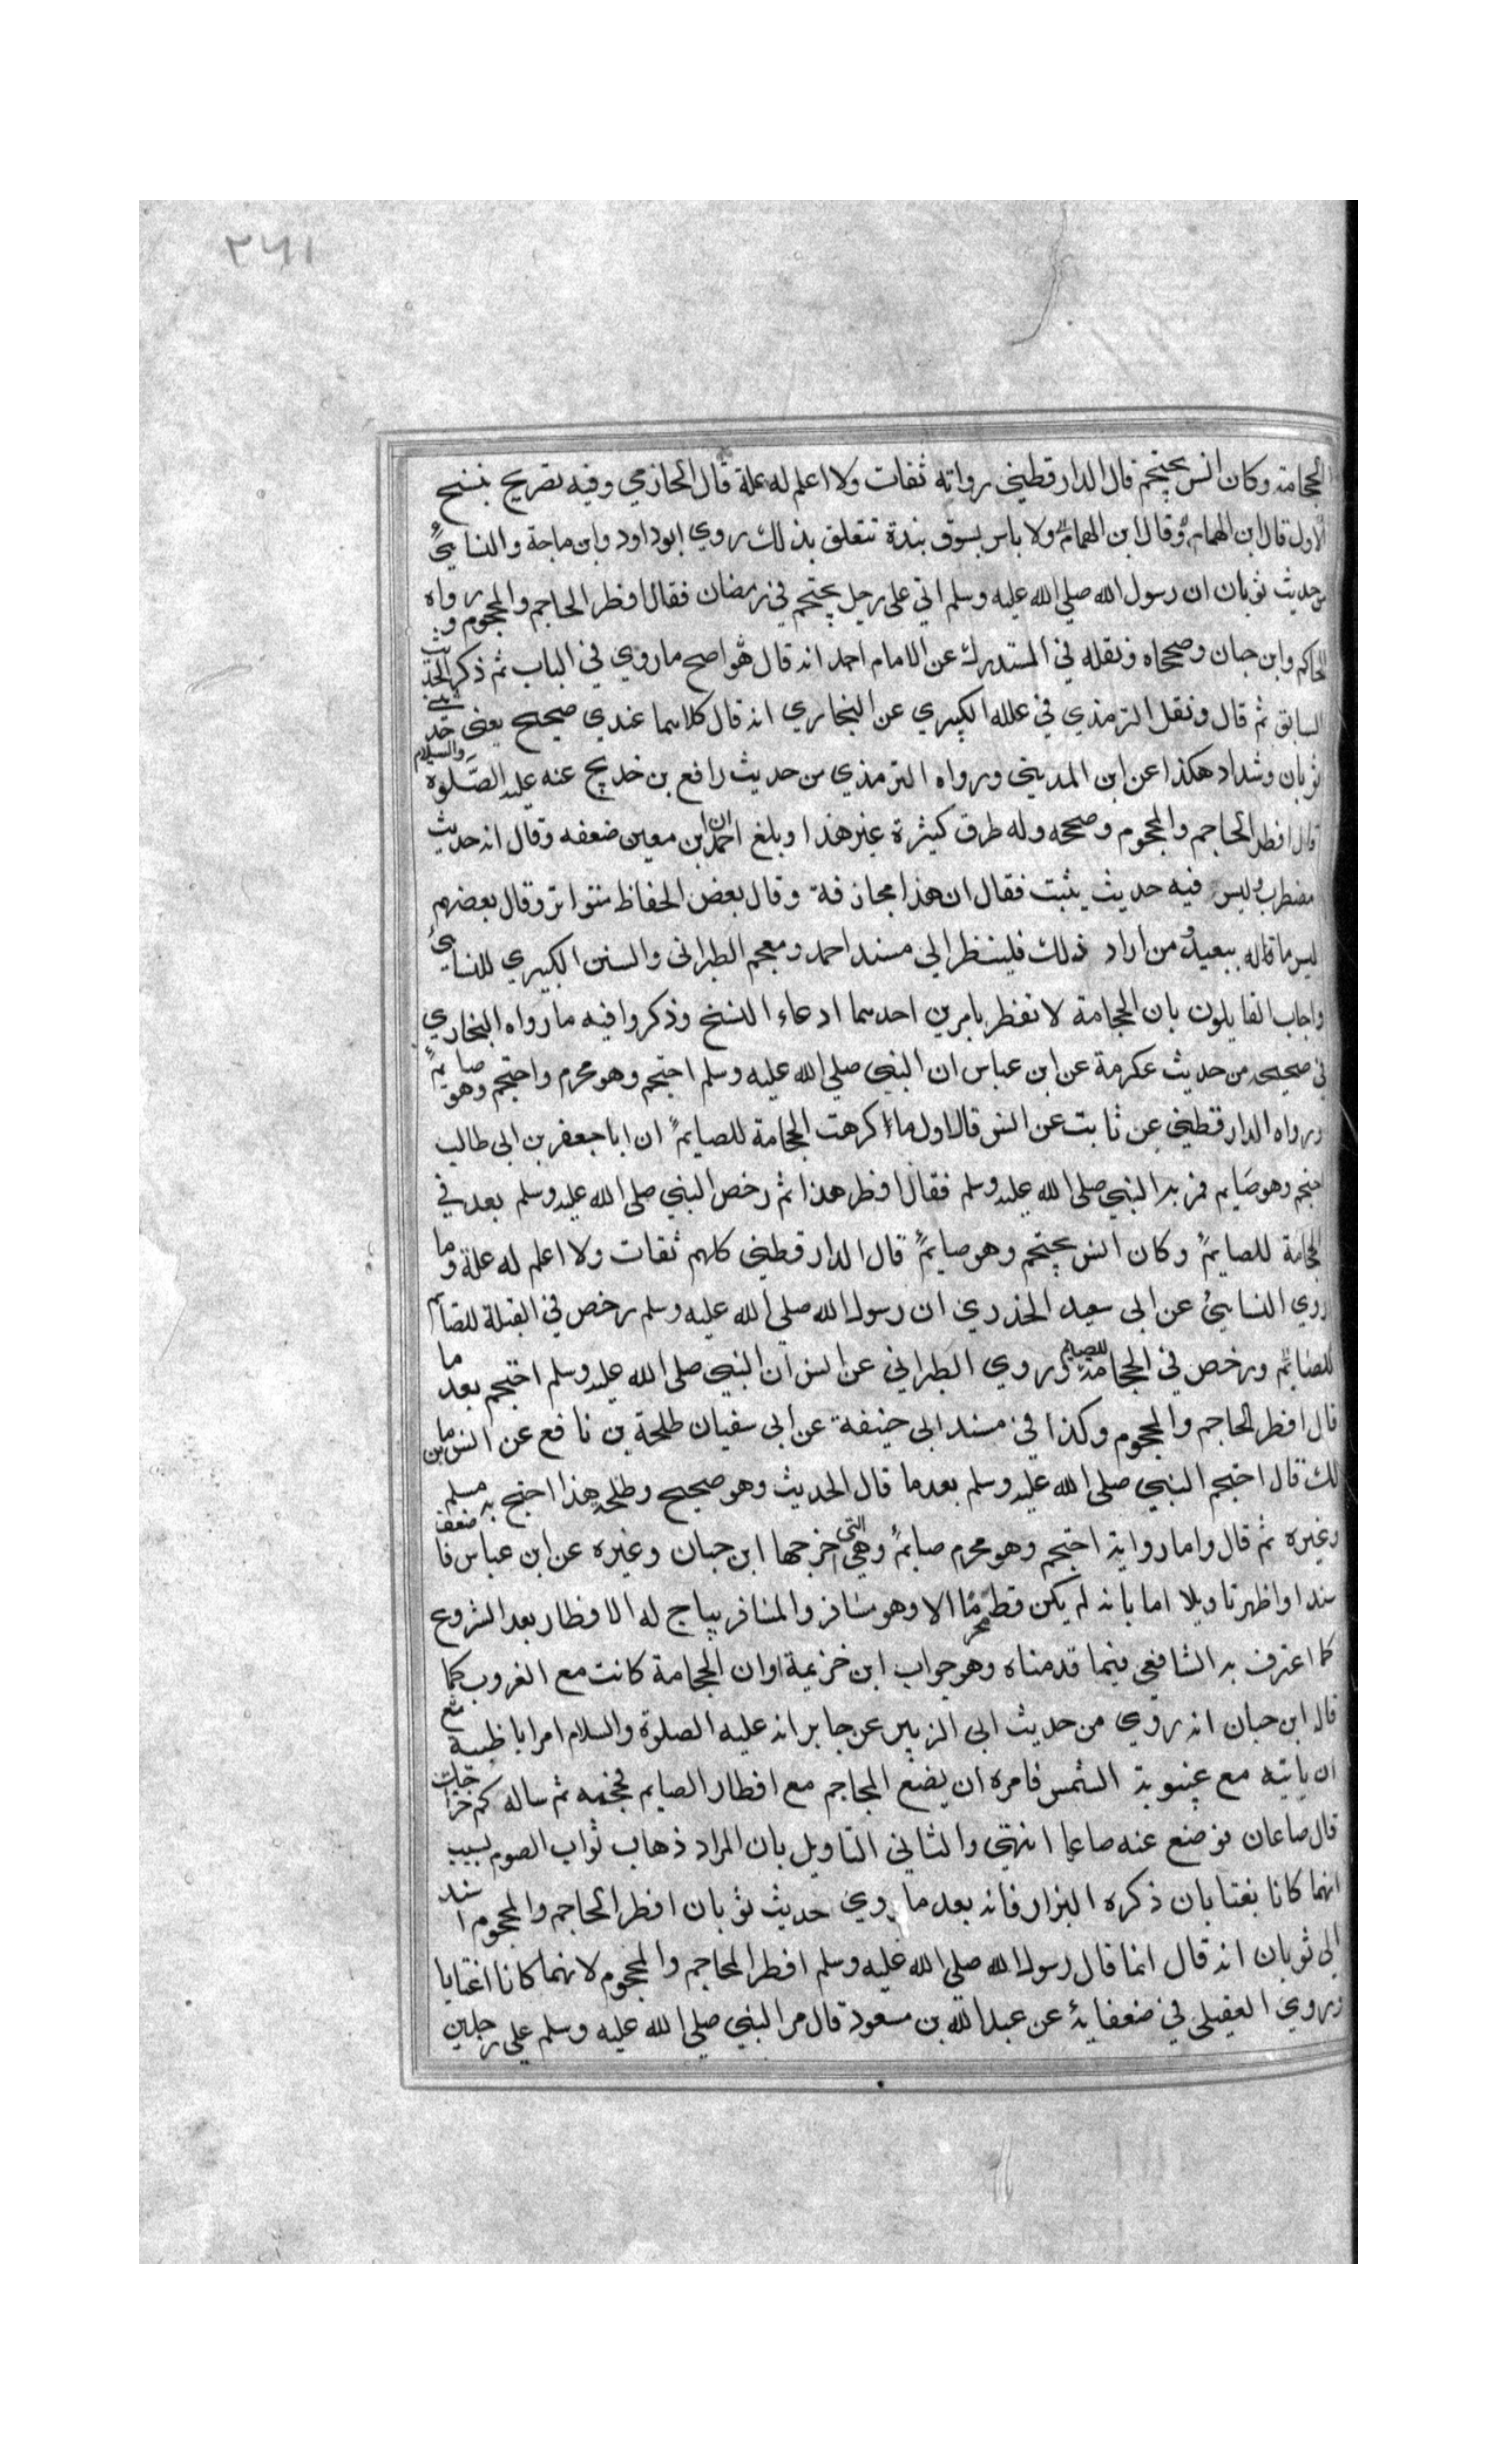 ٢٦١
الحجامة وكان انس يحتجم قال الدارقطني رواته ثقات ولا اعلم له علة قال الحازمي وفيه تصريح بنسخ
الاول قال ابن الهمام وقال ابن الهمام ولا باس بسوق نبذة تتعلق بذلك روي ابو داود وابن ماجة والنسايي
من حديث ثوبان ان رسول الله صلي الله عليه وسلم اتي على رجل يحتجم في رمضان فقال افطر الحاجم والمحجوم ورواه
الحاكم وابن حبان وصححاه ونقله في المستدرك عن الامام احمد انه قال هو اصح ما روي في الباب ثم ذكر الحديث
السابق ثم قال ونقل الترمذي في علله الكبيري عن البخاري انه قال كلاهما عندي صحيح يعني حديثي
ثوبان وشداد هكذا عن ابن المديني ورواه الترمذي من حديث رافع بن خديج عنه عليه الصلوة والسلام
قال افطر الحاجم والمحجوم وصححه وله طرق كثيرة غير هذا وبلغ احمد ان ابن معين ضعفه وقال انه حديث
مضطرب وليس فيه حديث يثبت فقال ان هذا مجازفة وقال بعض الحفاظ متواتر وقال بعضهم
ليس ما قاله ببعيد ومن اراد ذلك فلينظر الي مسند احمد ومعجم الطبراني والسنن الكبيري للنسايي
واجاب القايلون بان الحجامة لا تفطر بامرين احدهما ادعاء النسخ وذكروا فيه ما رواه البخاري
في صحيحه من حديث عكرمة عن ابن عباس ان النبي صلي الله عليه وسلم احتجم وهو محرم واحتجم وهو صايم
ورواه الدارقطني عن ثابت عن انس قال اول ما كرهت الحجامة للصايم ان ابا جعفر بن ابي طالب
احتجم وهو صايم فمر به النبي صلى الله عليه وسلم فقال افطر هذا ثم رخص النبي صلى الله عليه وسلم بعد في
الحجامة للصايم وكان انس يحتجم وهو صايم قال الدارقطني كلهم ثقات ولا اعلم له علة وما
روي النسايئ عن ابي سعيد الخدري ان رسول الله صلي الله عليه وسلم رخص في القبلة للصايم
للصايم ورخص في الحجامة للصايم وروي الطبراني عن انس ان النبي صلى الله عليه وسلم احتجم بعد ما
قال افطر الحاجم والمحجوم وكذا في مسند ابي حنيفة عن ابي سفيان طلحة بن نافع عن انس بن ما
لك قال احتجم النبي صلى الله عليه وسلم بعد ما قال الحديث وهو صحيح وطلحة هذا احتج به مسلم
وغيره ثم قال واما رواية احتجم وهو محرم صايم وهي التي اخرجها ابن حبان وغيره عن ابن عباس فاضعف
سندا واظهر تاويلا اما بانه لم يكن قط محرما الا وهو مسافر والمسافر يباح له الافطار بعد الشروع
كما اعترف به الشافعي فيما قدمناه وهو جواب ابن خزيمة او ان الحجامة كانت مع الغروب كما
قاله ابن حبان انه روي من حديث ابي الزبير عن جابر انه عليه الصلوة والسلام امر ابا طيبة
ان ياتيه مع غيبوبة الشمس فامره ان يضع المحاجم مع افطار الصايم فحجمه ثم ساله كم خراجك
قال صاعان فوضع عنه صاعا انتهي والثاني التاويل بان المراد ذهاب ثواب الصوم بسبب
انهما كانا يغتابان ذكره البزار فانه بعد ما روي حديث ثوبان افطر الحاجم والمحجوم اسند
الي ثوبان انه قال انما قال رسول الله صلي الله عليه وسلم افطر الحاجم والمحجوم لانهما كانا اغتابا
وروي العقيلي في ضعفايه عن عبد الله بن مسعود قال مر النبي صلي الله عليه وسلم علي رجلين